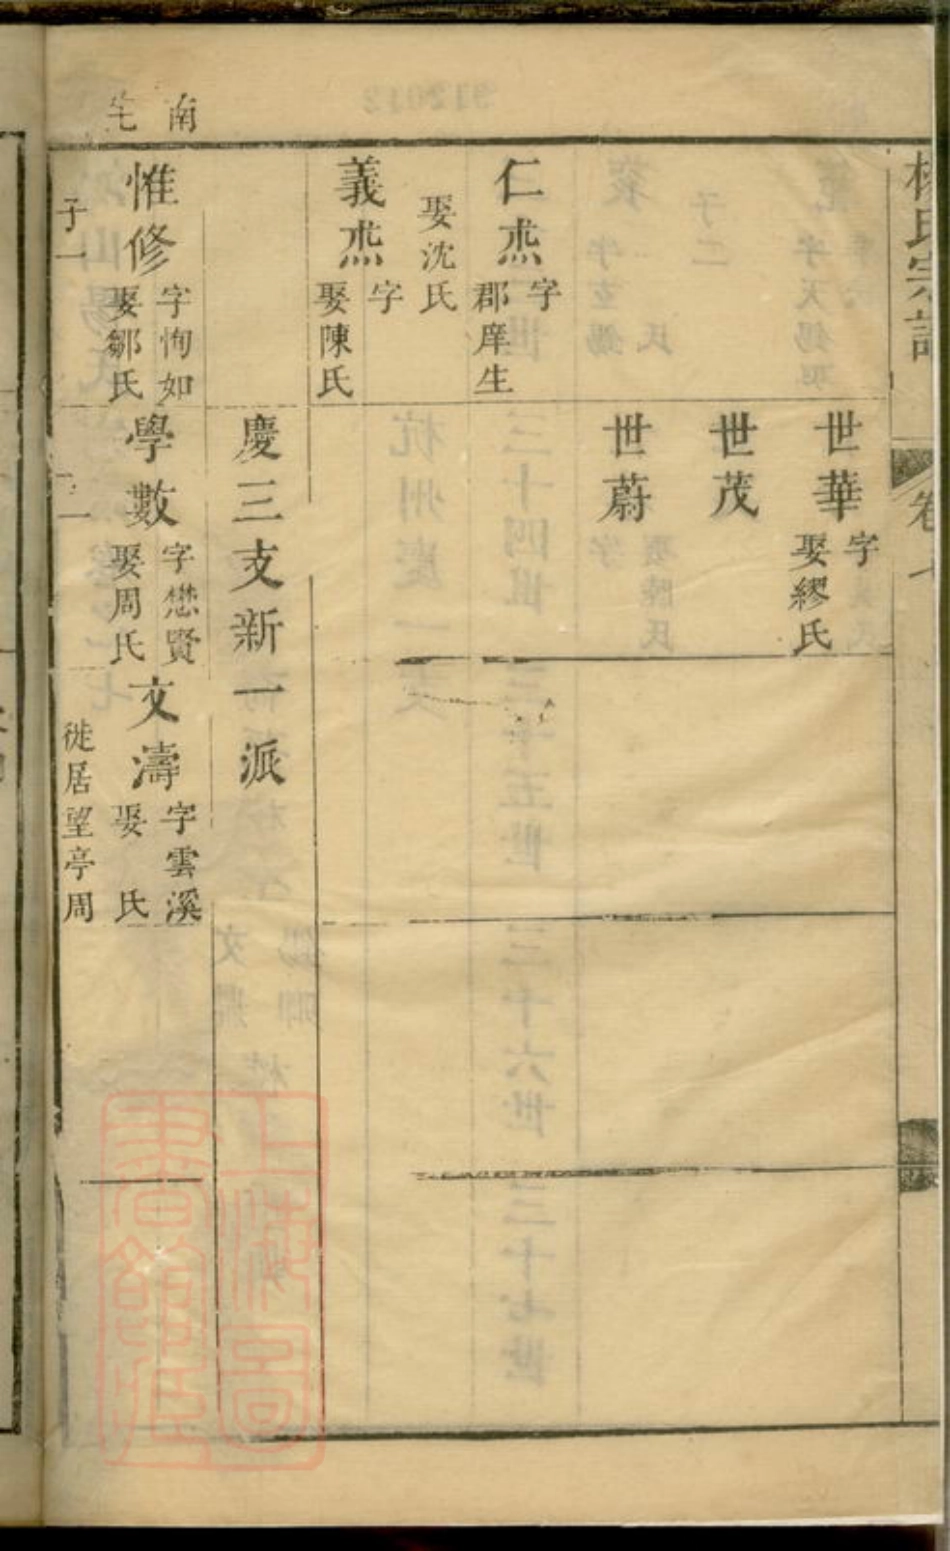 楊氏宗譜
卷十
世華
字
娶繆氏
世茂
世蔚
仁烝
字
郡庠生
娶沈氏
義烝
字
娶陳氏
慶三支新一派
南宅
惟修
字恂如
娶鄒氏
子一
學數
字懋賢
娶周氏
子一
文濤
字雲溪
娶 氏
徙居望亭周
上海圖書館藏